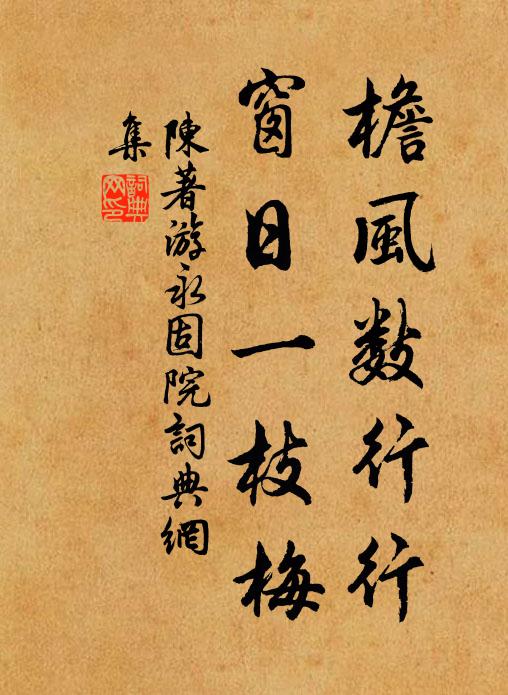 檐風数行行
窗日一枝梅
陳著游永固院詞典網
集
詞典
网印